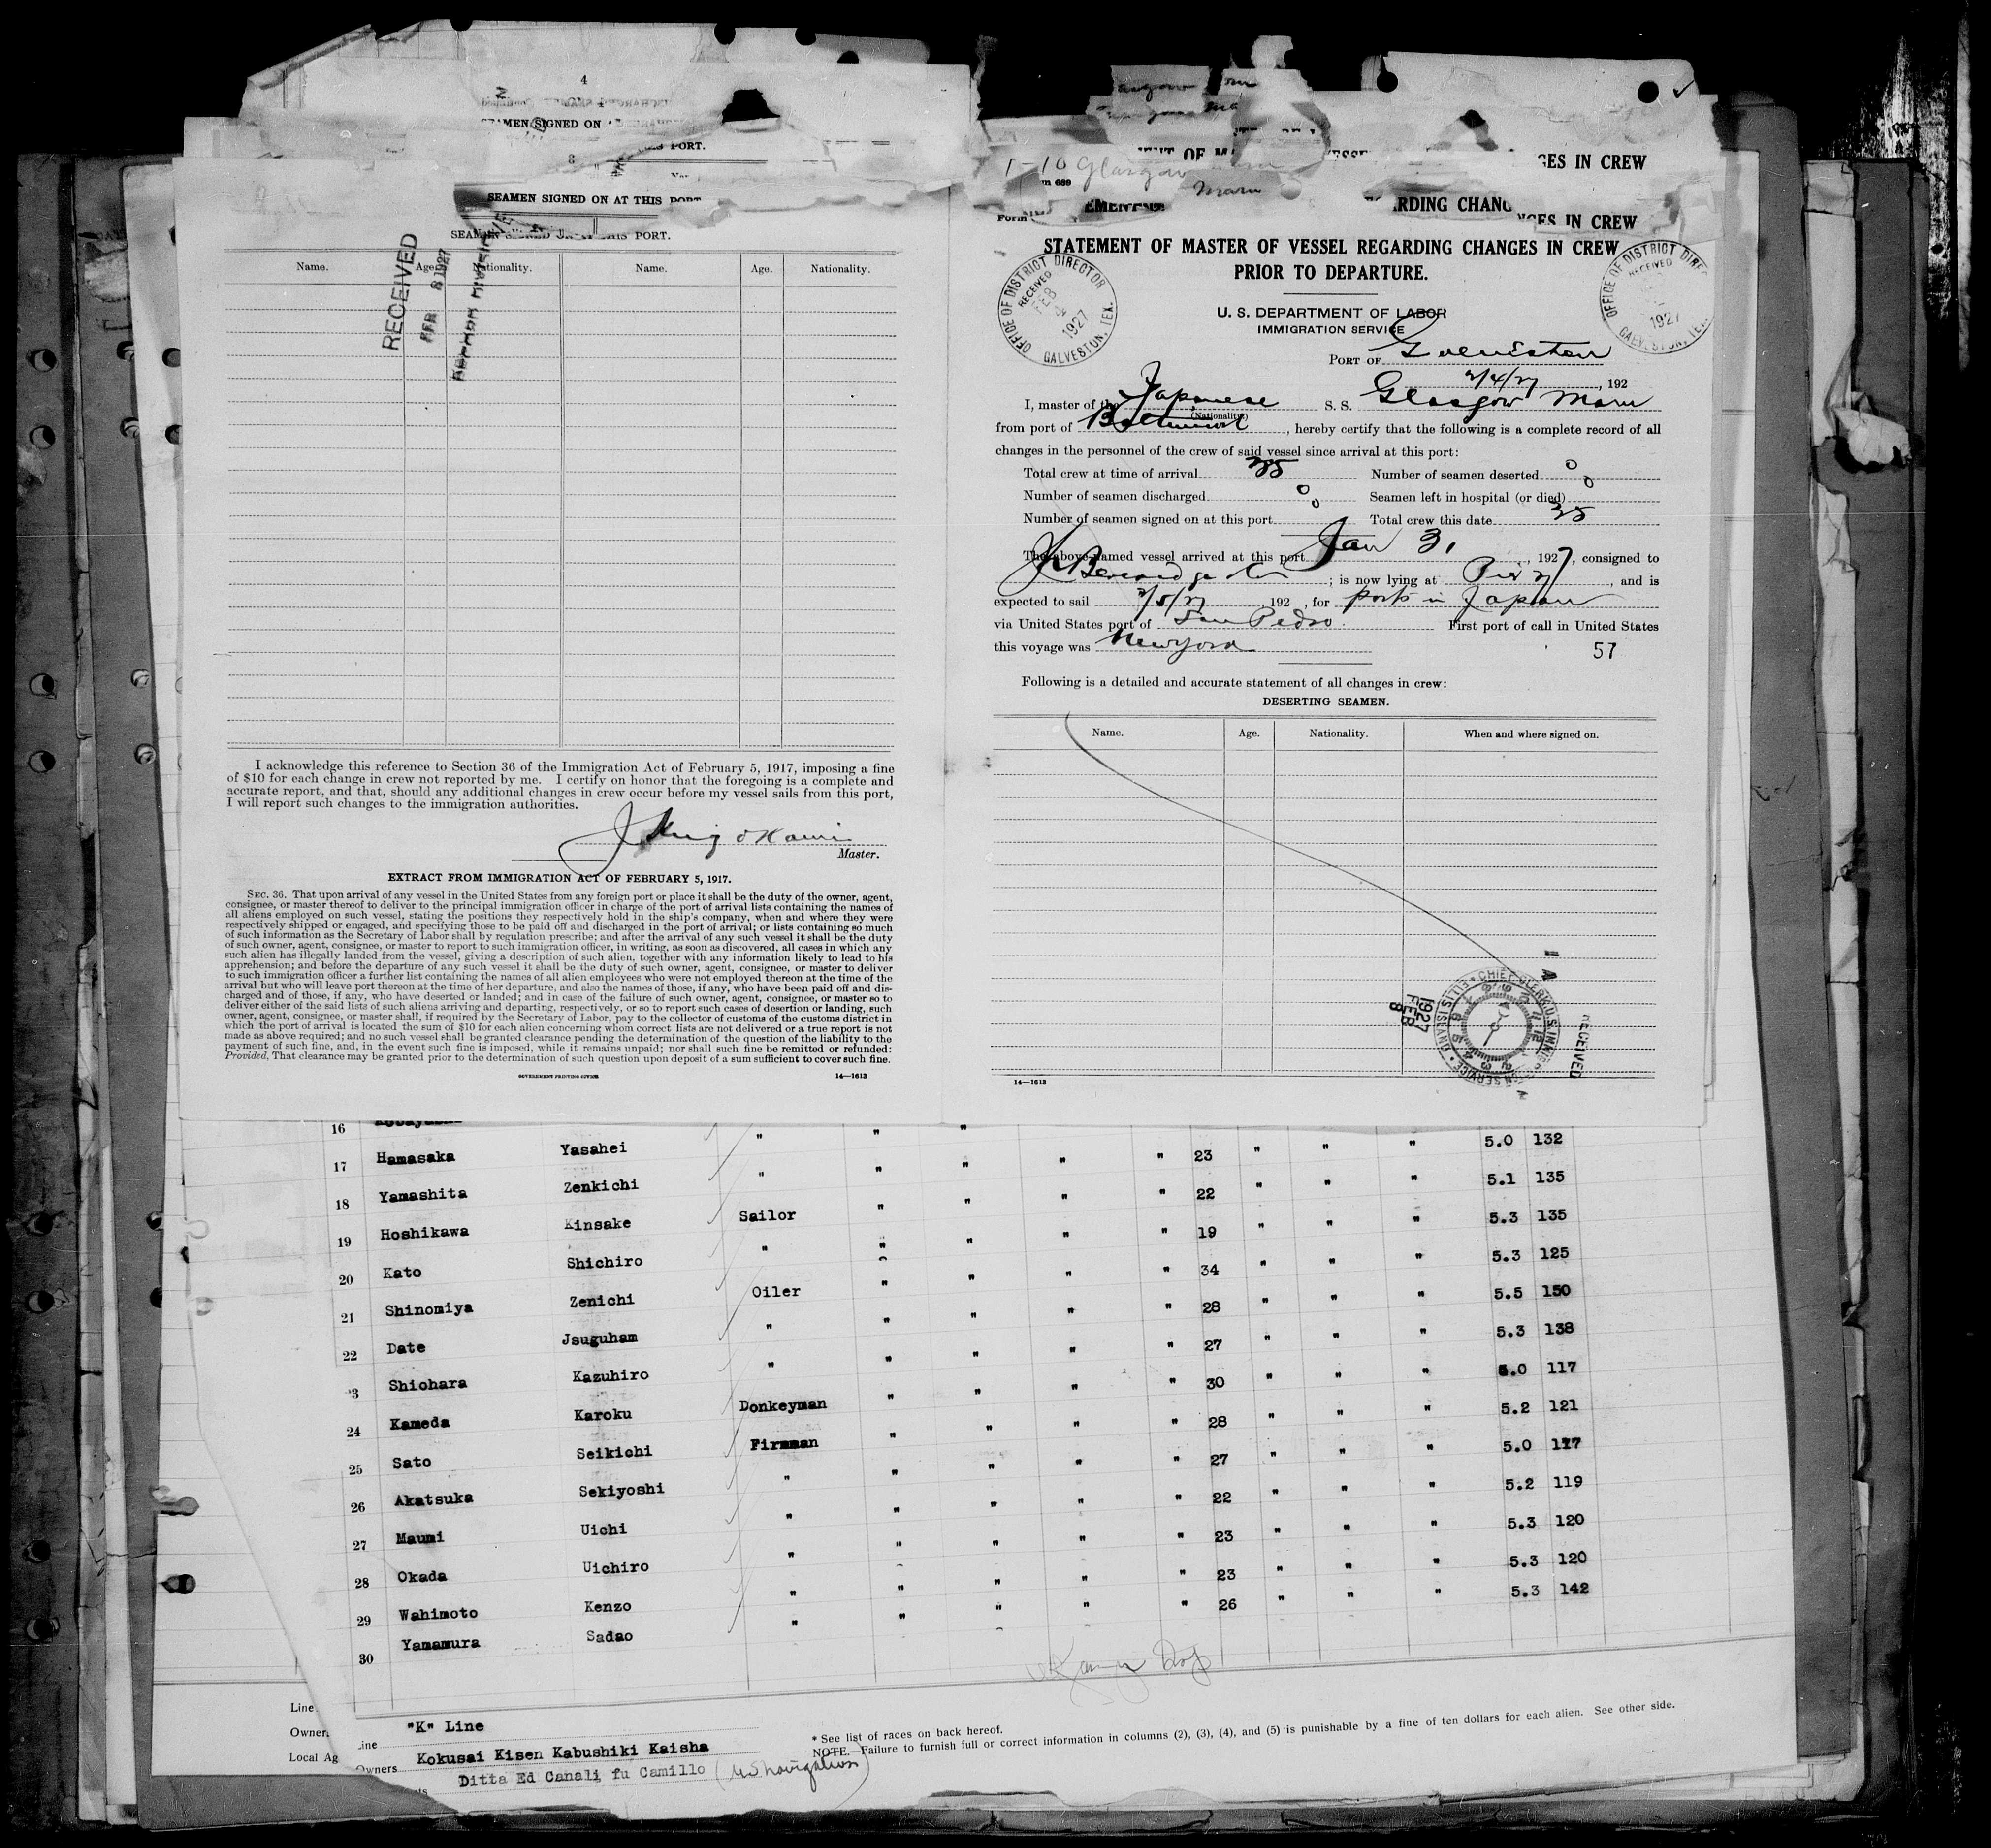 4
SEAMEN SIGNED ON
PORT.
SEAMEN SIGNED ON AT THIS PORT
SEAMEN SIGNED ON AT THIS PORT.
Name. Age. Nationality. Name. Age. Nationality.
RECEIVED
FEB 8 1927
I acknowledge this reference to Section 36 of the Immigration Act of February 5, 1917, imposing a fine
of $10 for each change in crew not reported by me. I certify on honor that the foregoing is a complete and
accurate report, and that, should any additional changes in crew occur before my vessel sails from this port,
I will report such changes to the immigration authorities.
Master.
EXTRACT FROM IMMIGRATION ACT OF FEBRUARY 5, 1917.
SEC. 36. That upon arrival of any vessel in the United States from any foreign port or place it shall be the duty of the owner, agent,
consignee, or master thereof to deliver to the principal immigration officer in charge of the port of arrival lists containing the names of
all aliens employed on such vessel, stating the positions they respectively hold in the ship's company, when and where they were
respectively shipped or engaged, and specifying those to be paid off and discharged in the port of arrival; or lists containing so much
of such information as the Secretary of Labor shall by regulation prescribe; and after the arrival of any such vessel it shall be the duty
of such owner, agent, consignee, or master to report to such immigration officer, in writing, as soon as discovered, all cases in which any
such alien has illegally landed from the vessel, giving a description of such alien, together with any information likely to lead to his
apprehension; and before the departure of any such vessel it shall be the duty of such owner, agent, consignee, or master to deliver
to such immigration officer a further list containing the names of all alien employees who were not employed thereon at the time of the
arrival but who will leave port thereon at the time of her departure, and also the names of those, if any, who have been paid off and dis-
charged and of those, if any, who have deserted or landed; and in case of the failure of such owner, agent, consignee, or master so to
deliver either of the said lists of such aliens arriving and departing, respectively, or so to report such cases of desertion or landing, such
owner, agent, consignee, or master shall, if required by the Secretary of Labor, pay to the collector of customs of the customs district in
which the port of arrival is located the sum of $10 for each alien concerning whom correct lists are not delivered or a true report is not
made as above required; and no such vessel shall be granted clearance pending the determination of the question of the liability to the
payment of such fine, and, in the event such fine is imposed, while it remains unpaid; nor shall such fine be remitted or refunded:
Provided, That clearance may be granted prior to the determination of such question upon deposit of a sum sufficient to cover such fine.
GOVERNMENT PRINTING OFFICE 14—1613
GES IN CREW
1-10 Glasgow Maru
689
RDING CHANG
GES IN CREW
Form
STATEMENT OF MASTER OF VESSEL REGARDING CHANGES IN CREW
PRIOR TO DEPARTURE.
OFFICE OF DISTRICT DIRECTOR RECEIVED FEB 1927 GALVESTON, TEX.
OFFICE OF DISTRICT DIREC RECEIVED 1927 GALVESTON, TEX.
U. S. DEPARTMENT OF LABOR
IMMIGRATION SERVICE
PORT OF Galveston
2/4/27, 192
I, master of the Japanese S. S. Glasgow Maru
(Nationality)
from port of Baltimore, hereby certify that the following is a complete record of all
changes in the personnel of the crew of said vessel since arrival at this port:
Total crew at time of arrival 35 Number of seamen deserted 0
Number of seamen discharged 0 Seamen left in hospital (or died) 0
Number of seamen signed on at this port 0 Total crew this date 35
The above-named vessel arrived at this port Jan 31, 1927, consigned to
; is now lying at Pier 27, and is
expected to sail 2/5/27, 192 , for ports in Japan
via United States port of San Pedro First port of call in United States
this voyage was New York
57
Following is a detailed and accurate statement of all changes in crew:
DESERTING SEAMEN.
Name. Age. Nationality. When and where signed on.
RECEIVED
1927 FEB 8
14—1613
16 " " " 5.0 132
17 Hamasaka Yasahei " " " " " 23 " " " 5.1 135
18 Yamashita Zenkichi " " " " 22 " " " 5.3 135
19 Hoshikawa Kinsake Sailor " " " " 19 " " " 5.3 125
20 Kato Shichiro " " " " " 34 " " " 5.5 150
21 Shinomiya Zenichi Oiler " " " " 28 " " " 5.3 138
22 Date Jsuguham " " " " " 27 " " " 5.0 117
3 Shiohara Kazuhiro " " " " " 30 " " " 5.2 121
24 Kameda Karoku Donkeyman " " " " 28 " " " 5.0 127
25 Sato Seikichi Fireman " " " " 27 " " " 5.2 119
26 Akatsuka Sekiyoshi " " " " " 22 " " " 5.3 120
27 Maumi Uichi " " " " " 23 " " " 5.3 120
28 Okada Uichiro " " " " " 23 " " " 5.3 142
29 Wahimoto Kenzo " " " " " 26 " " "
30 Yamamura Sadao "
Line
Owners
Local Ag
Line "K" Line
Owners Kokusai Kisen Kabushiki Kaisha
Ditta Ed Canali fu Camillo (US Navigation)
* See list of races on back hereof.
NOTE.—Failure to furnish full or correct information in columns (2), (3), (4), and (5) is punishable by a fine of ten dollars for each alien. See other side.